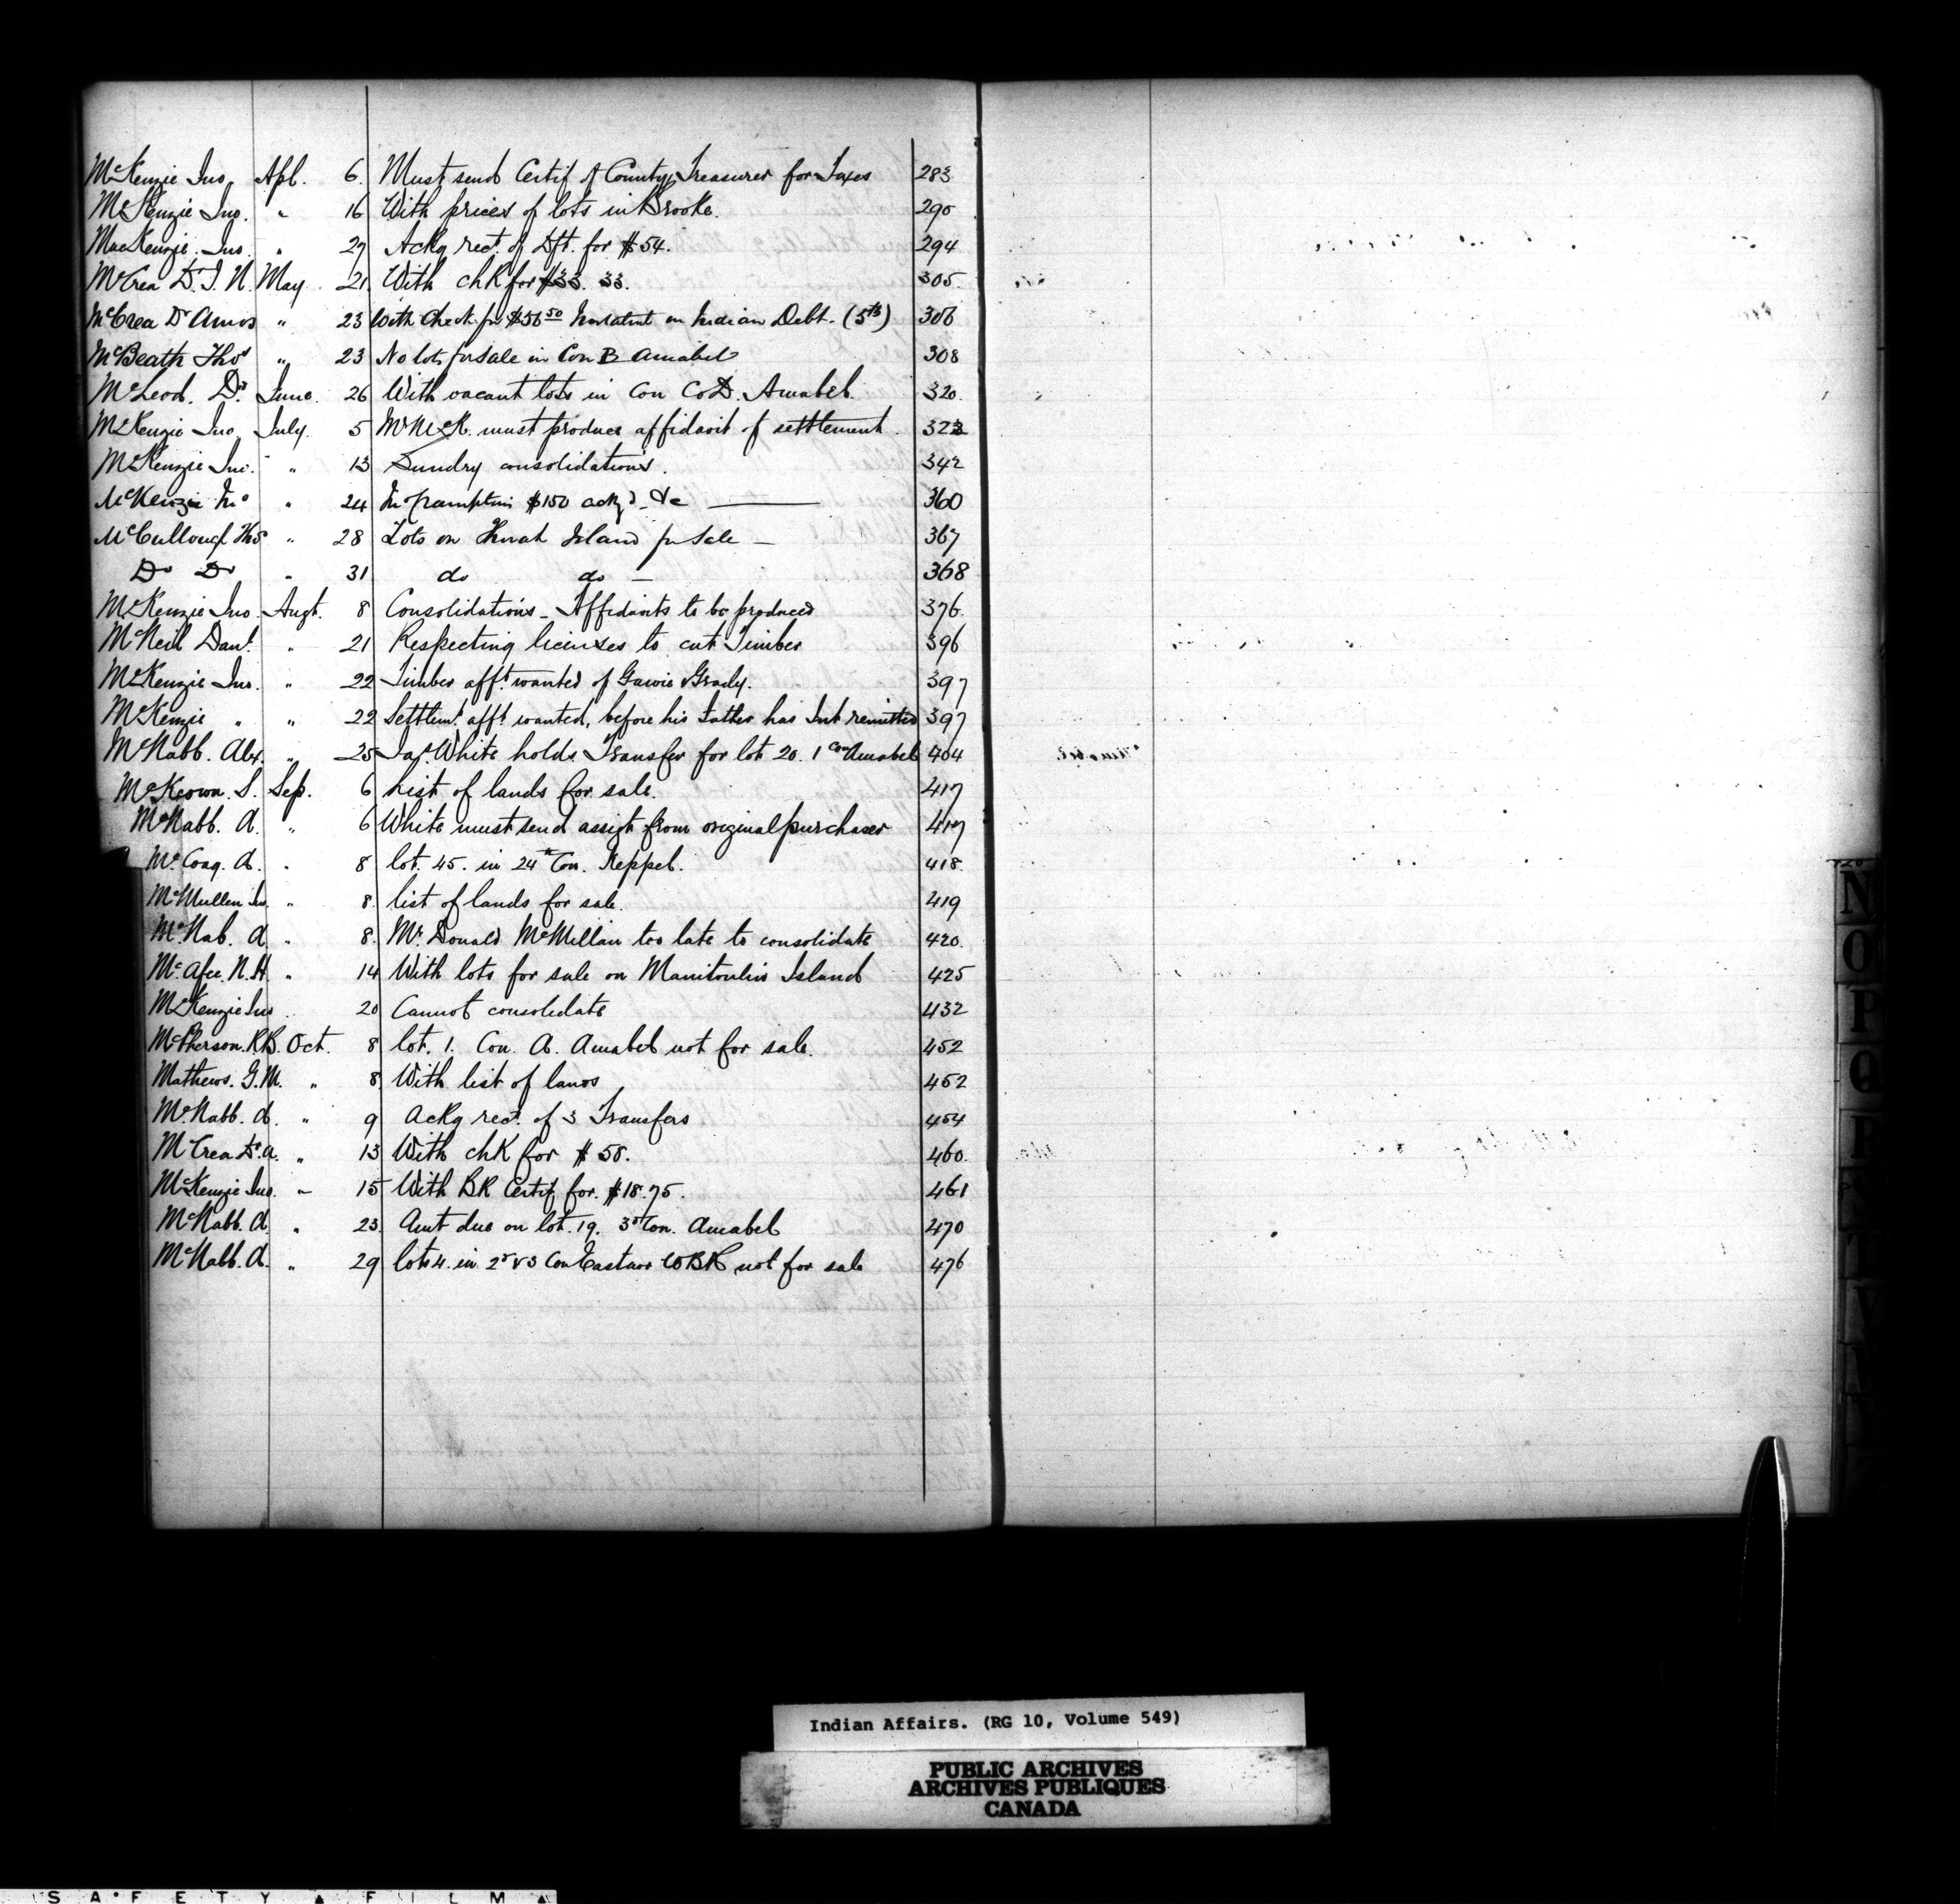 McKenzie Jno. Apl. 6. Must send Certif of County Treasurer for Taxes 283
McKenzie Jno. " 16 With prices of lots in Brooke. 290
MacKenzie. Jno. " 27 Ackg rect. of Dft. for $54. 294
McCrea D. T. N. May 21. With chk for $33. 33. 305.
McCrea Dr Amos " 23 With Check for $56 50 Instalmt on Indian Debt. (5th) 306
McBeath Thos " 23 No lots for sale in Con B Amabel 308
McLeod. Dd. June. 26 With vacant lots in Con C & D. Amabel. 320.
McKenzie Jno. July. 5 Mr McK. must produce affidavit of settlement. 323
McKenzie Jno. " 13 Sundry consolidations. 342
McKenzie Jno " 24 $150 ackgd &c 360
McCullough Thos " 28 Lots on Island for Sale — 367
Do Do " 31 do do — 368
McKenzie Jno. Augt. 8 Consolidations - Affidavits to be produced 376.
McNeil Danl. " 21 Respecting licenses to cut Timber 396
McKenzie Jno. " 22 Timber afft. wanted of Gawie Grady. 397
McKenzie " " 22 Settlemt. afft. wanted, before his Father has Int remitted 397
McNabb. Alex. " 25 Jas. White holds Transfer for lot 20. 1 Con Amabel 404
McKeown. S. Sep. 6 List of lands for sale. 417
McNabb. A. " 6 White must send assigt from original purchaser 417
McCoag. A. " 8 lot. 45. in 24th Con. Keppel. 418.
McMullen Jno. " 8. list of lands for sale. 419
McNab. A. " 8. Mr. Donald McMillan too late to consolidate 420.
McAfee. N. H. " 14 With lots for sale on Manitoulin Island 425
McKenzie Jno " 20 Cannot consolidate 432
McPherson. R.B. Oct. 8 lot. 1. Con. A. Amabel not for sale. 452
Mathews. G. M. " 8. With list of lands 452
McNabb. A. " 9 Ackg rect. of 3 Transfers 454
McCrea Dr. A. " 13 With chk for $58. 460.
McKenzie Jno. " 15 With BR Certif. for. $18.75. 461
McNabb. A. " 23. Amt due on lot. 19. 3d Con. Amabel 470
McNabb. A. " 29 lots 4. in 2d & 3 Con Eastnor WBR not for sale 476
N
O
P
Q
R
V
Indian Affairs. (RG 10, Volume 549)
PUBLIC ARCHIVES
ARCHIVES PUBLIQUES
CANADA
SAFETY ▲ FILM ▲